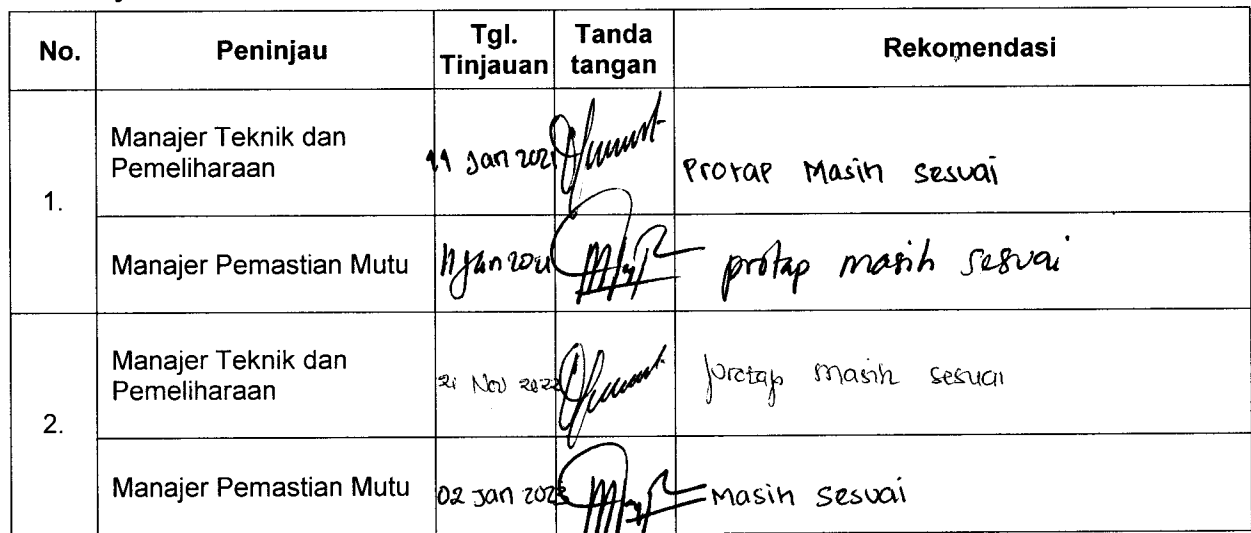 No. Peninjau Tgl. Tinjauan Tanda tangan Rekomendasi
1. Manajer Teknik dan Pemeliharaan 11 Jan 2021 Protap Masih sesuai
Manajer Pemastian Mutu 11 Jan 2021 protap masih sesuai
2. Manajer Teknik dan Pemeliharaan 21 Nov 2022 protap masih sesuai
Manajer Pemastian Mutu 02 Jan 2023 Masih sesuai